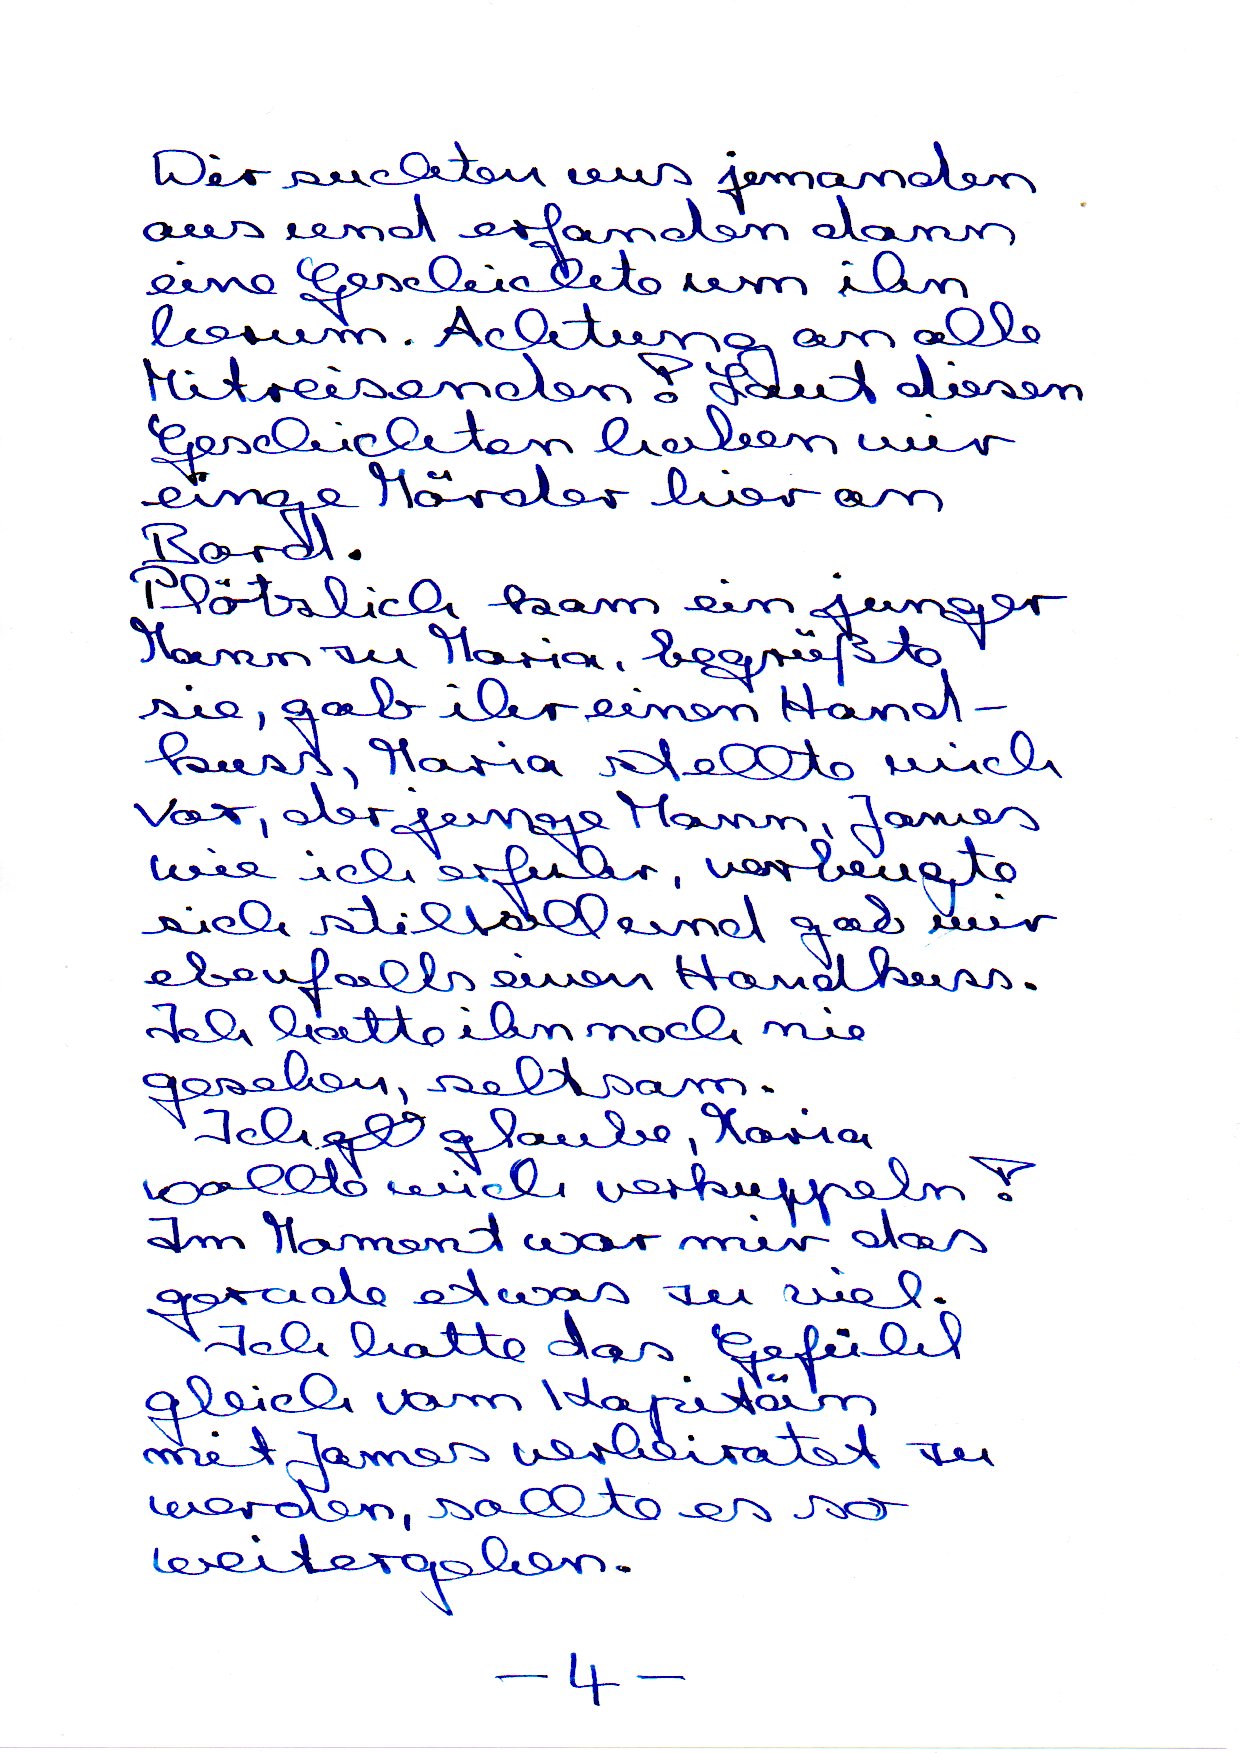 Wir suchten uns jemanden
aus und erfanden dann
eine Geschichte um ihn
herum. Achtung an alle
Mitreisenden! Laut diesen
Geschichten haben wir
einge Mörder hier an
Bord.
Plötzlich kam ein junger
Mann zu Maria, begrüßte
sie, gab ihr einen Hand-
kuss, Maria stellte mich
vor, der junge Mann, James
wie ich erfuhr, verbeugte
sich stilvoll und gab mir
ebenfalls einen Handkuss.
Ich hatte ihn noch nie
gesehen, seltsam.
Ich glaube, Maria
wollte mich verkuppeln!
Im Moment war mir das
gerade etwas zu viel.
Ich hatte das Gefühl
gleich vom Kapitän
mit James verheiratet zu
werden, sollte es so
weitergehen.
- 4 -